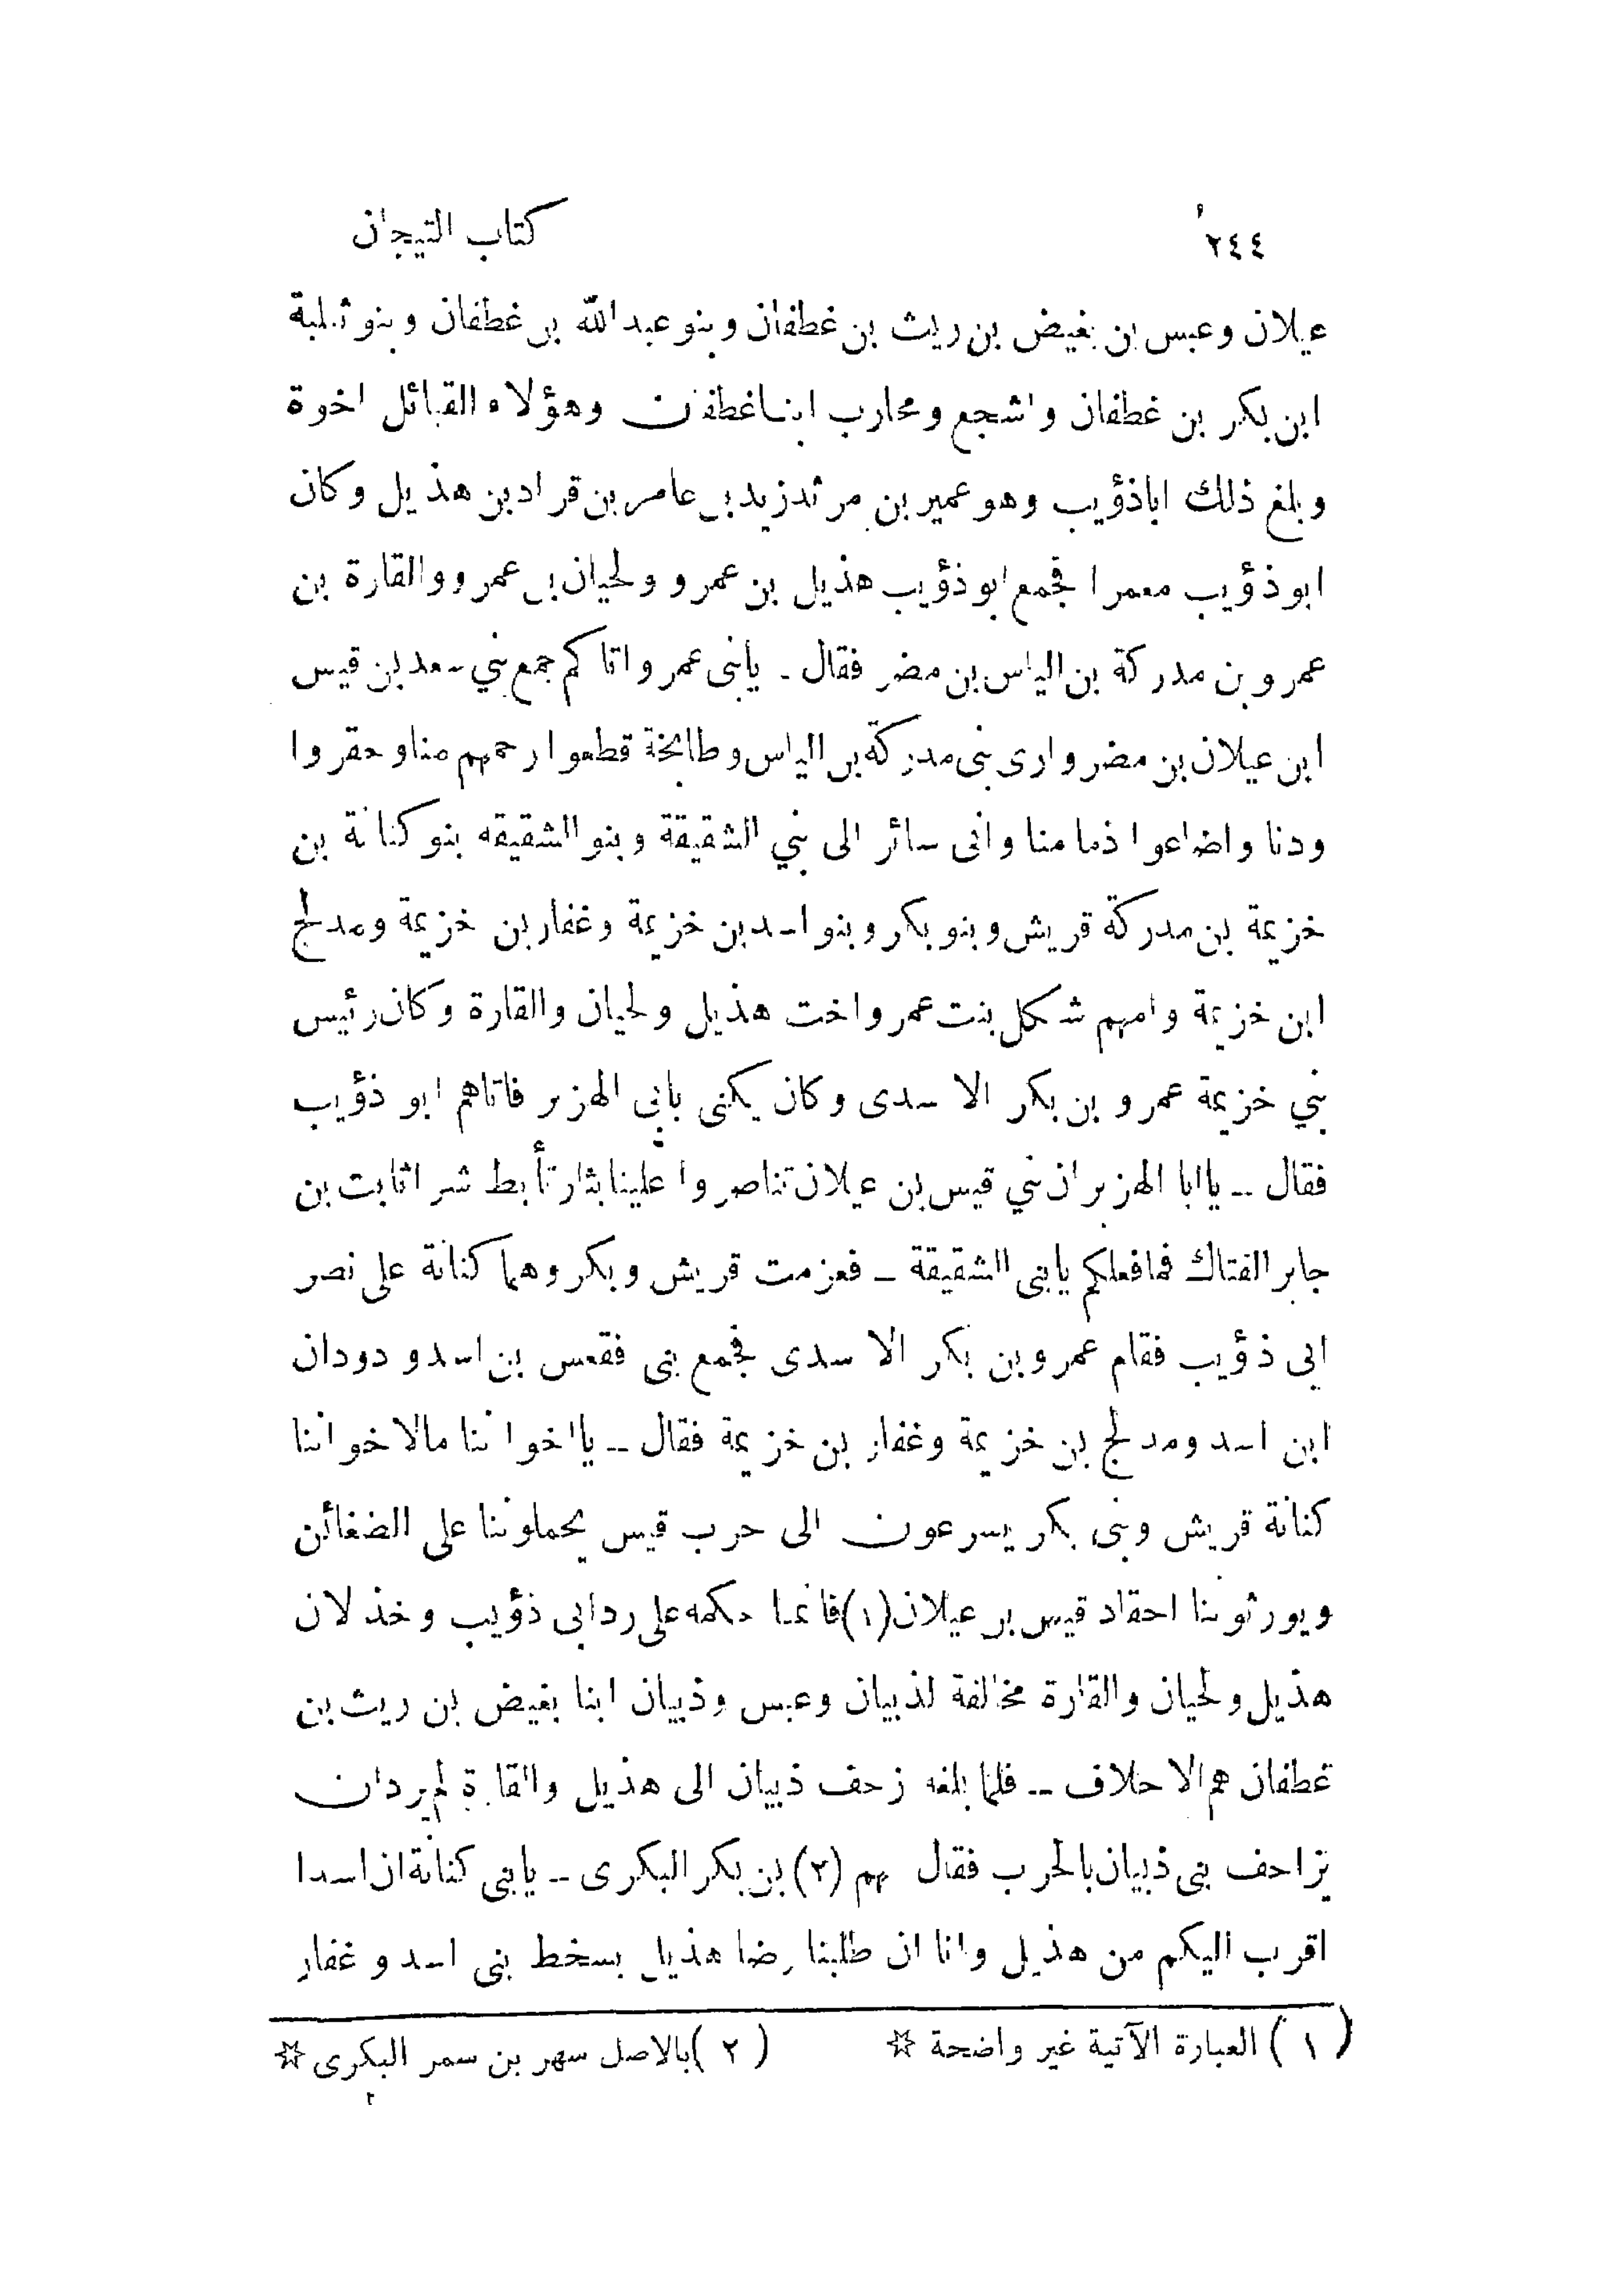 ٢٤٤ كتاب التيجان
عيلان وعبس بن بغيض بن ريث بن غطفان وبنو عبد الله بن غطفان وبنو ثعلبة
ابن بكر بن غطفان واشجع ومحارب ابنا غطفان وهؤلاء القبائل اخوة
وبلغ ذلك اباذؤيب وهو عمير بن مرثد زيد بن عامر بن قراد بن هذيل وكان
ابو ذؤيب معمرا فجمع ابو ذؤيب هذيل بن عمرو ولحيان بن عمرو والقارة بن
عمرو بن مدركة بن الياس بن مضر فقال ـ يابنى عمرو اتاكم جمع بني سعد بن قيس
ابن عيلان بن مضر وارى بنى مدركة بن الياس وطابخة قطعوا رحمهم منا وحقروا
ودنا واضاعوا ذمامنا وانى سائر الى بني الشقيقة وبنو الشقيقه بنو كنانة بن
خزيمة بن مدركة قريش وبنو بكر وبنو اسد بن خزيمة وغفار بن خزيمة ومدلج
ابن خزيمة وامهم شكل بنت عمرو اخت هذيل ولحيان والقارة وكان رئيس
بني خزيمة عمرو بن بكر الاسدى وكان يكنى بابى الهزبر فاتاهم ابو ذؤيب
فقال ـ يا ابا الهزبر ان بني قيس بن عيلان تناصروا علينا بثار تأبط شرا ثابت بن
جابر الفتاك فمافعلكم يابنى الشقيقة ـ فعزمت قريش وبكر وهما كنانة على نصر
ابى ذؤيب فقام عمرو بن بكر الاسدى فجمع بنى فقعس بن اسد ودودان
ابن اسد ومدلج بن خزيمة وغفار بن خزيمة فقال ـ يا اخواننا مالاخواننا
كنانة قريش وبنى بكر يسرعون الى حرب قيس يحملوننا على الضغائن
ويورثوننا احقاد قيس بن عيلان (١) فانما حكمه على رد ابى ذؤيب وخذلان
هذيل ولحيان والقارة مخالفة لذبيان وعبس وذبيان ابنا بغيض بن ريث بن
غطفان هم الاحلاف ـ فلما بلغه زحف ذبيان الى هذيل والقارة لم يرد ان
تزاحف بنى ذبيان بالحرب فقال بهم (٢) بن بكر البكرى ـ يابنى كنانة ان اسدا
اقرب اليكم من هذيل وانا ان طلبنا رضا هذيل بسخط بنى اسد وغفار
(١) العبارة الآتية غير واضحة ☆ (٢) بالاصل سهر بن سمر البكرى ☆